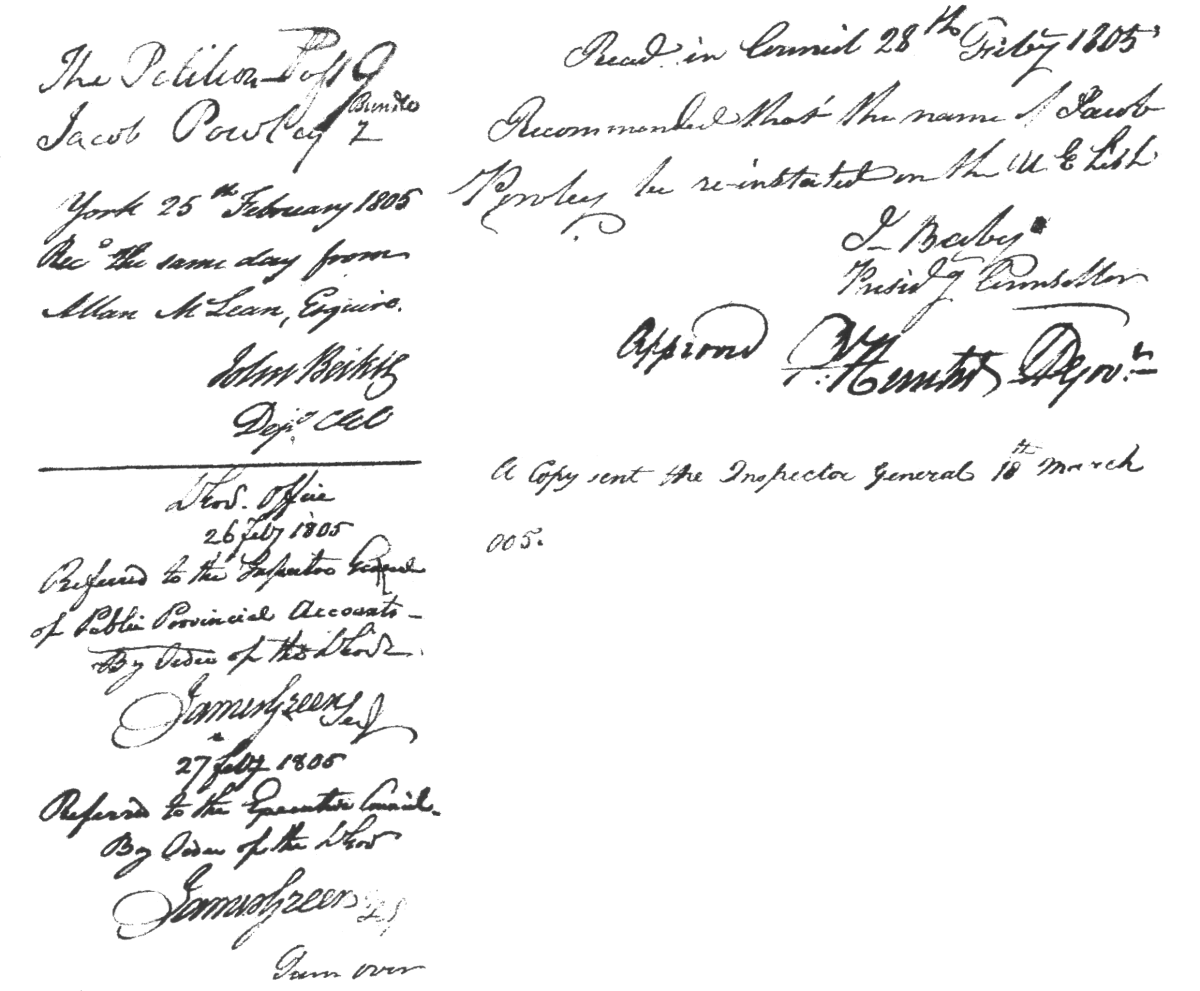 The Petition of
P/9
Jacob Powley
Bundle
7
York 25th February 1805
Recd the same day from
Allan McLean, Esquire.
John Beikie
Depy CEC
Lt Govr. Office
26 Feby 1805
Referred to the Inspector General
of Public Provincial Accounts -
By Order of the Lt Govr
James Green Secy
27 Feby 1805
Referred to the Executive Council.
By Order of the Lt Govr
James Green
Turn over
Read in Council 28th Feby 1805
Recommended that the name of Jacob
Powley be re-instated on the U E List
J Baby
Presidg Counsellor
Approved P. Hunter Lt Govr.
A Copy sent the Inspector General 18th March
005.